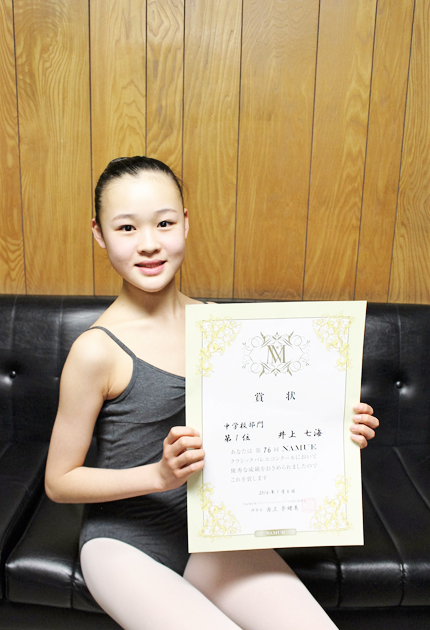 NM
賞状
中学校部門
第1位 井上 七海
あなたは 第76回 NAMUE
クラシックバレエコンクールにおいて
優秀な成績をおさめられましたので
これを賞します
NAMUE